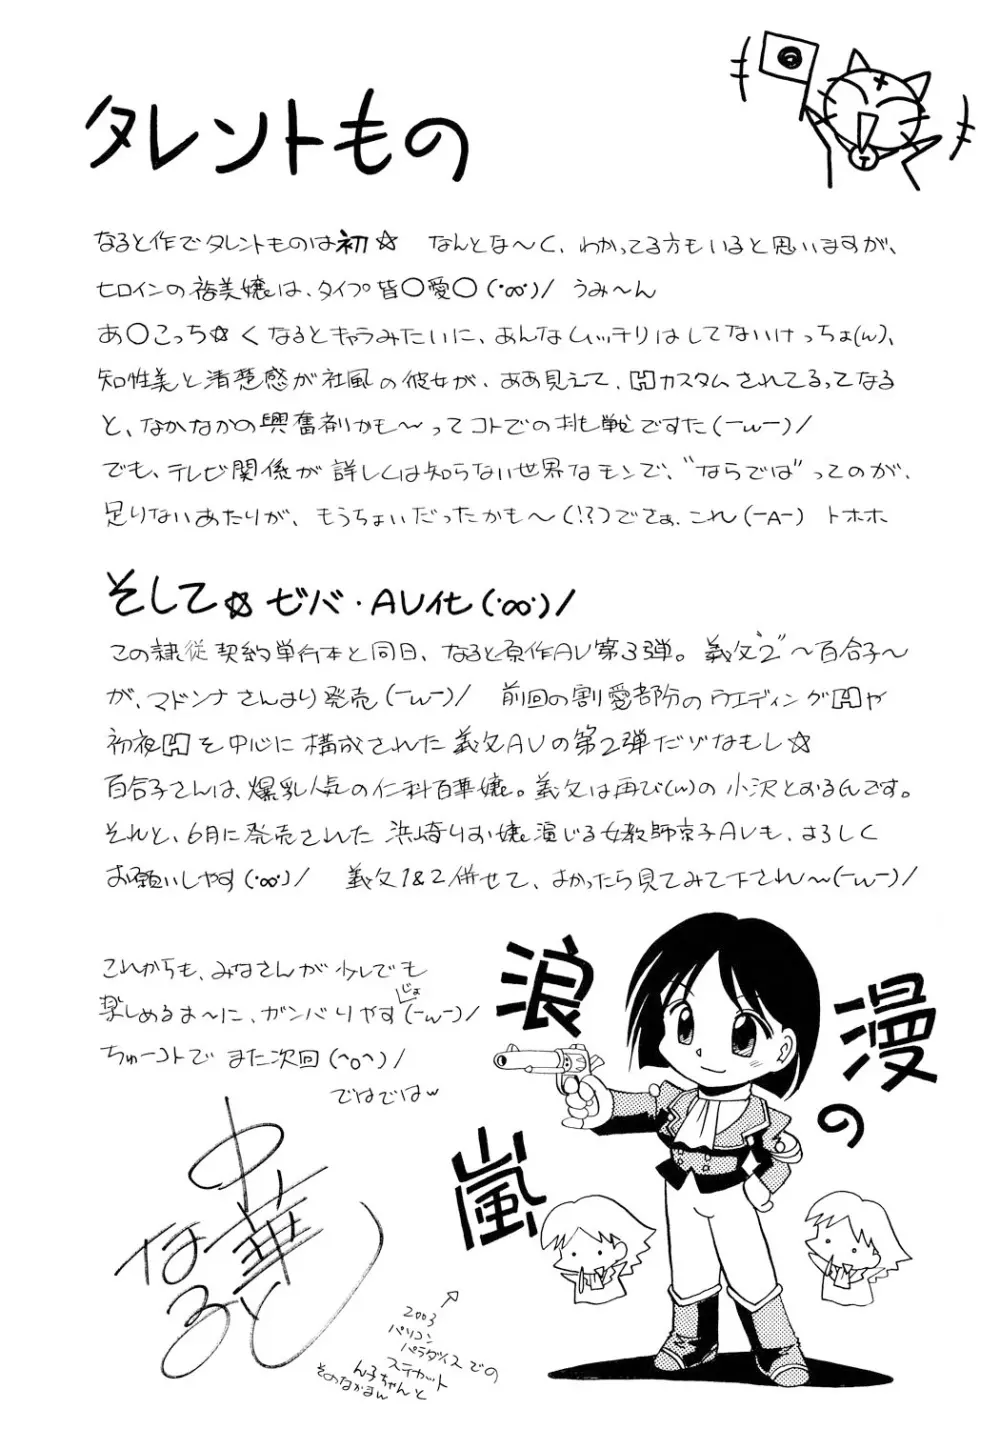 タレントもの
なると作でタレントものは初☆ なんとな〜く、わかってる方もいると思いますが、
ヒロインの裕美嬢は、タイプ皆〇愛〇(・∞・)/ うみ〜ん
あ〇こっち☆くなるとキャラみたいに、あんなムッチリはしてないけっちょ(w)、
知性美と清楚感が社風の彼女が、ああ見えて、Hカスタムされてるってなる
と、なかなかの興奮剤かも〜ってコトでの挑戦ですた(ーwー)/
でも、テレビ関係が詳しくは知らない世界なモンで、"ならでは"ってのが、
足りないあたりが、もうちょいだったかも〜(!?)でさぁ、これ(ーAー) トホホ
そして☆ゼバ・AV化(・∞・)/
この隷従契約単行本と同日、なると原作AV第3弾。義父"2"〜百合子〜
が、マドンナさんより発売(ーwー)/ 前回の割愛部分のウエディングHや
初夜Hを中心に構成された義父AVの第2弾だゾなもし☆
百合子さんは、爆乳人気の仁科百華嬢。義父は再び(w)の小沢とおるんです。
それと、6月に発売された浜崎りお嬢演じる女教師京子AVも、よろしく
お願いしやす(・∞・)/ 義父1&2併せて、よかったら見てみて下され〜(ーwー)/
これからも、みなさんが少しでも
楽しめるよ〜に、ガンバりやす(ーwー)/
じょ
ちゅーコトでまた次回(^o^)/
ではではw
中華
なると
浪漫の
嵐
2003
パソコン
パラダイスでの
ステカット
ん子ちゃんと
そのなかまん
T